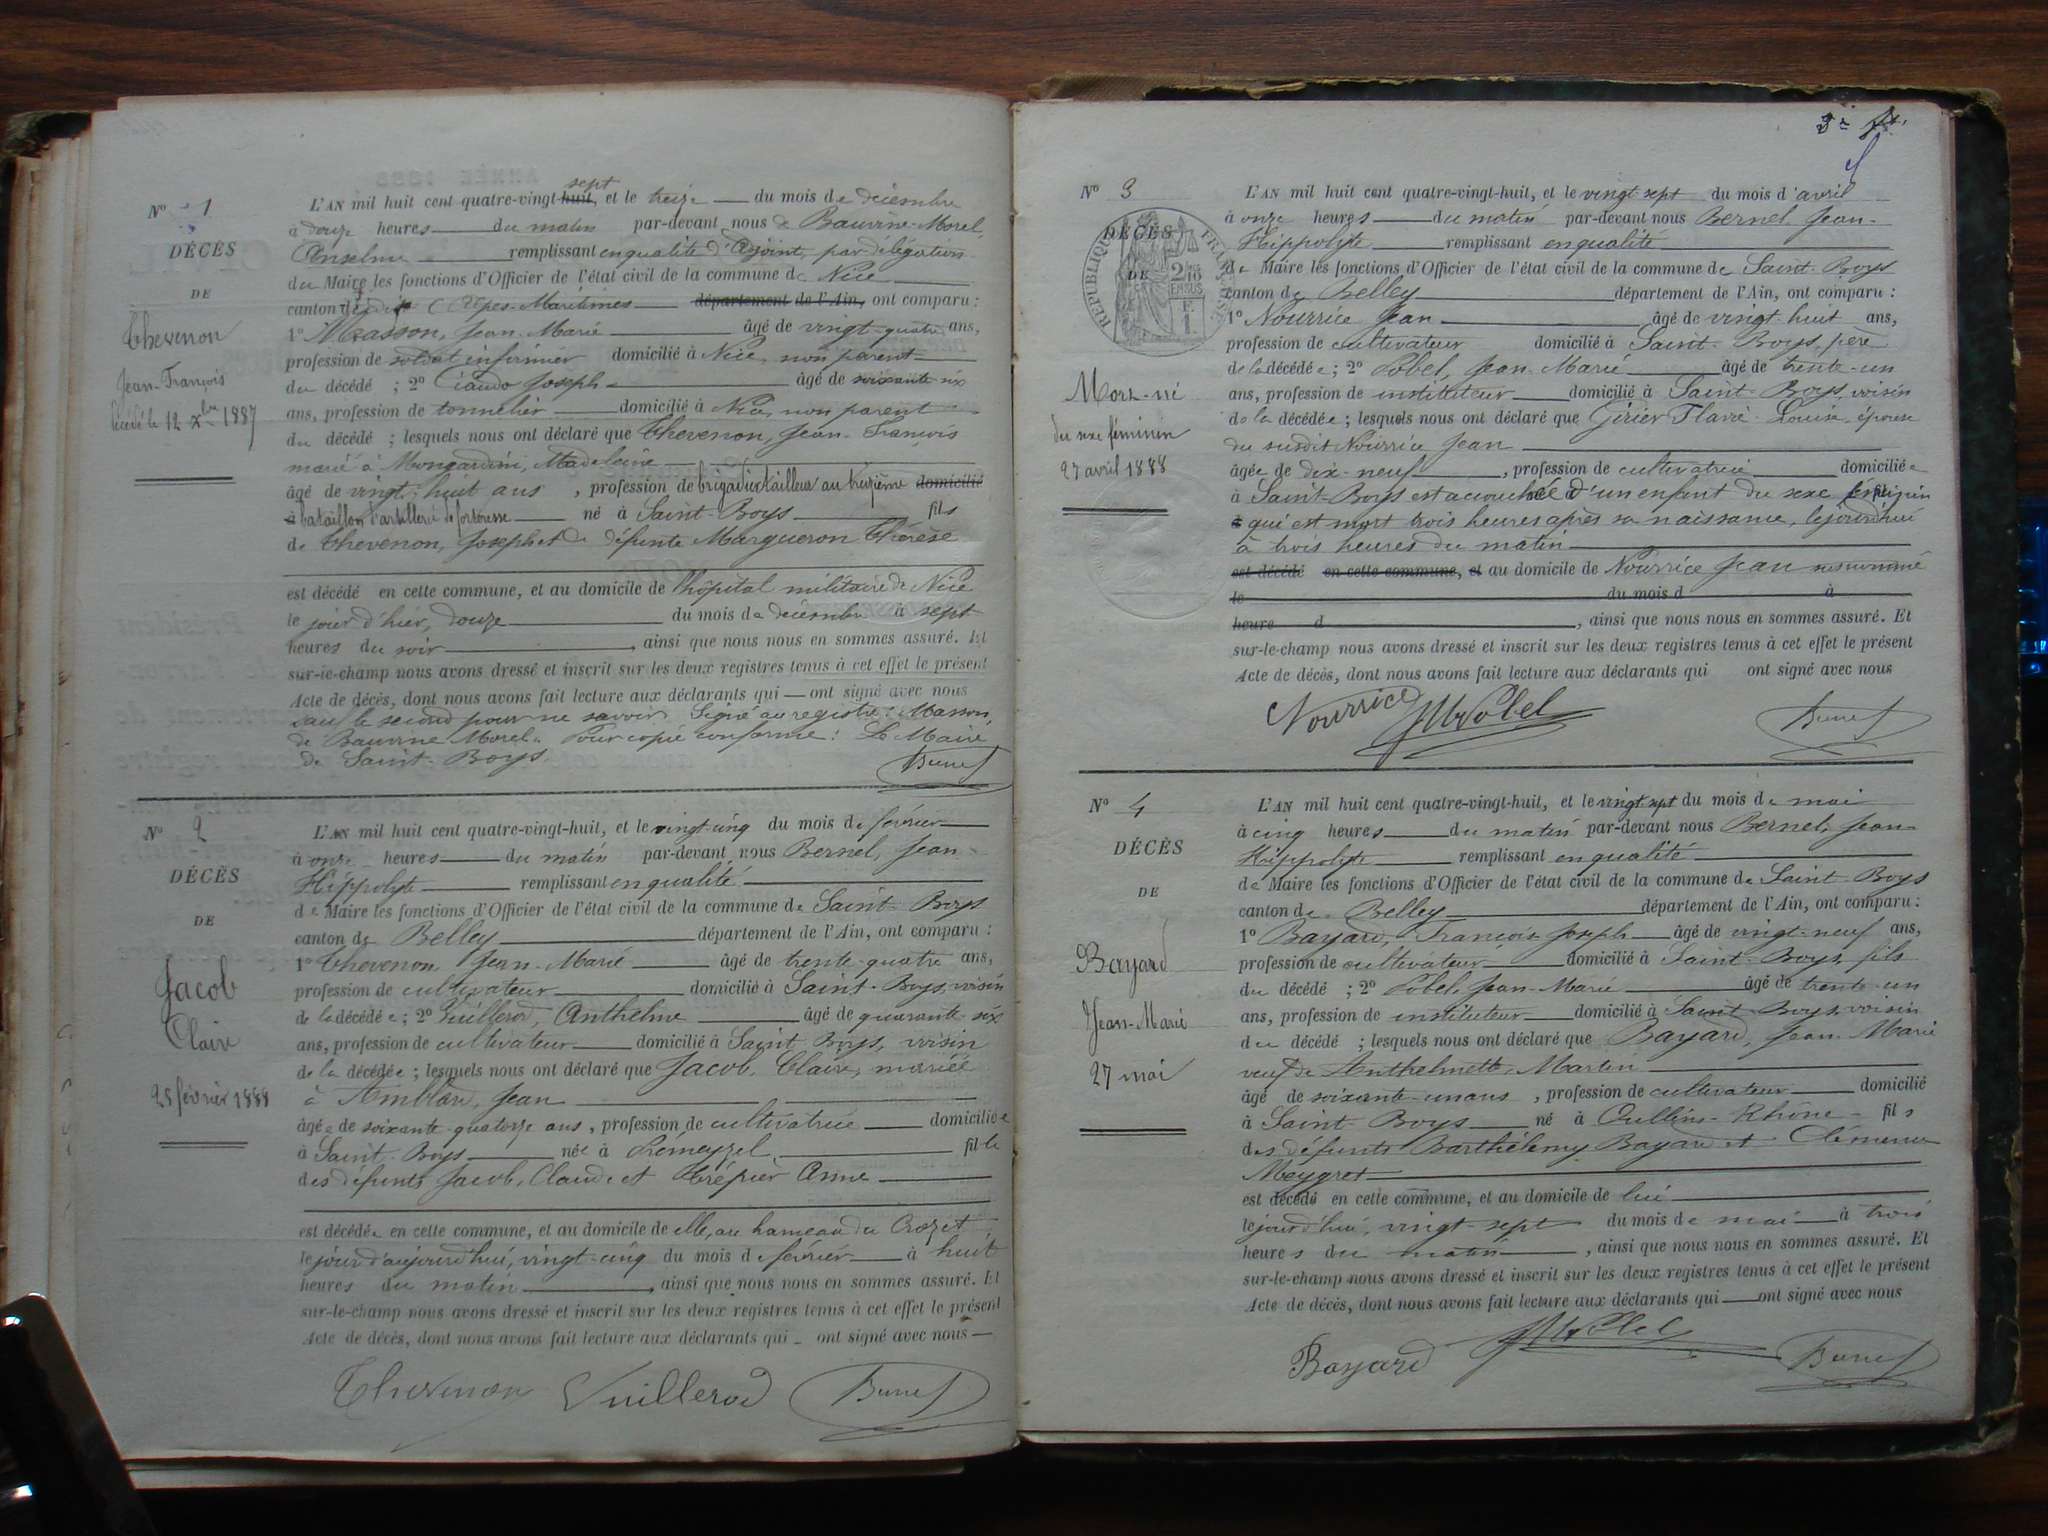 N° 1
DÉCÈS
DE
Thevenon
Jean-François
décédé le 12 Xbre 1887
sept
L'AN mil huit cent quatre-vingt-huit, et le treize du mois de décembre
à douze heures du matin par-devant nous de Bauvine-Morel,
Anselme remplissant en qualité d'Adjoint, par délégation
du Maire les fonctions d'Officier de l'état civil de la commune de Nice
canton des Alpes-Maritimes département de l'Ain, ont comparu :
1° Masson, Jean-Marie âgé de vingt-quatre ans,
profession de soldat infirmier domicilié à Nice, non parent
du décédé ; 2° Ciaudo Joseph âgé de soixante-six
ans, profession de tonnelier domicilié à Nice, non parent
du décédé ; lesquels nous ont déclaré que Thevenon, Jean-François
marié à Mongardini, Madeleine
âgé de vingt-huit ans, profession de brigadier tailleur au treizième domicilié
à bataillon d'artillerie de forteresse né à Saint-Boys fils
de Thevenon, Joseph et de défunte Margueron Thérèse
est décédé en cette commune, et au domicile de l'hôpital militaire de Nice
le jour d'hier, douze du mois de décembre à sept
heures du soir, ainsi que nous nous en sommes assuré. Et
sur-le-champ nous avons dressé et inscrit sur les deux registres tenus à cet effet le présent
Acte de décès, dont nous avons fait lecture aux déclarants qui ont signé avec nous
sauf le second pour ne savoir. Signé au registre : Masson,
de Bauvine Morel. Pour copie conforme : Le Maire
de Saint-Boys.
N° 2
DÉCÈS
DE
Jacob
Claire
25 février 1888
L'AN mil huit cent quatre-vingt-huit, et le vingt-cinq du mois de février
à onze heures du matin par-devant nous Bernel, Jean-
Hippolyte remplissant en qualité
de Maire les fonctions d'Officier de l'état civil de la commune de Saint-Boys
canton de Belley département de l'Ain, ont comparu :
1° Thevenon Jean-Marie âgé de trente-quatre ans,
profession de cultivateur domicilié à Saint-Boys, voisin
de la décédée ; 2° Vuillerod, Anthelme âgé de quarante-six
ans, profession de cultivateur domicilié à Saint-Boys, voisin
de la décédée ; lesquels nous ont déclaré que Jacob, Claire, mariée
à Amblard, Jean
âgée de soixante-quatorze ans, profession de cultivatrice domiciliée
à Saint-Boys née à Prémeyzel fille
des défunts Jacob, Claude et Trépier Anne
est décédée en cette commune, et au domicile de elle, au hameau du Crozet
le jour d'aujourd'hui, vingt-cinq du mois de février à huit
heures du matin, ainsi que nous nous en sommes assuré. Et
sur-le-champ nous avons dressé et inscrit sur les deux registres tenus à cet effet le présent
Acte de décès, dont nous avons fait lecture aux déclarants qui ont signé avec nous
Thevenon Vuillerod Bernel
N° 3
DÉCÈS
DE
RÉPUBLIQUE FRANÇAISE
2/10 EN SUS
Mort-né
du sexe féminin
27 avril 1888
L'AN mil huit cent quatre-vingt-huit, et le vingt sept du mois d'avril
à onze heures du matin par-devant nous Bernel Jean-
Hippolyte remplissant en qualité
de Maire les fonctions d'Officier de l'état civil de la commune de Saint-Boys
canton de Belley département de l'Ain, ont comparu :
1° Nourrice Jean âgé de vingt huit ans,
profession de cultivateur domicilié à Saint-Boys, père
de la décédée ; 2° Pobel, Jean-Marie âgé de trente-un
ans, profession de instituteur domicilié à Saint-Boys, voisin
de la décédée ; lesquels nous ont déclaré que Girier Flavie-Louise, épouse
du susdit Nourrice Jean
âgée de dix-neuf, profession de cultivatrice domiciliée
à Saint-Boys est accouchée d'un enfant du sexe féminin
qui est mort trois heures après sa naissance, le jourd'hui
à trois heures du matin
est décédé en cette commune, et au domicile de Nourrice Jean susnommé
le du mois d à
heure d, ainsi que nous nous en sommes assuré. Et
sur-le-champ nous avons dressé et inscrit sur les deux registres tenus à cet effet le présent
Acte de décès, dont nous avons fait lecture aux déclarants qui ont signé avec nous
Nourrice JM Pobel Bernel
N° 4
DÉCÈS
DE
Bayard
Jean-Marie
27 mai
L'AN mil huit cent quatre-vingt-huit, et le vingt sept du mois de mai
à cinq heures du matin par-devant nous Bernel, Jean-
Hippolyte remplissant en qualité
de Maire les fonctions d'Officier de l'état civil de la commune de Saint-Boys
canton de Belley département de l'Ain, ont comparu :
1° Bayard, François Joseph âgé de vingt-neuf ans,
profession de cultivateur domicilié à Saint-Boys, fils
du décédé ; 2° Pobel, Jean-Marie âgé de trente-un
ans, profession de instituteur domicilié à Saint-Boys, voisin
du décédé ; lesquels nous ont déclaré que Bayard, Jean-Marie
veuf de Anthelmette Martin
âgé de soixante-un ans, profession de cultivateur domicilié
à Saint-Boys né à Oullins-Rhône fils
des défunts Barthélemy Bayard et Clémence
Meygret
est décédé en cette commune, et au domicile de lui
le jourd'hui, vingt-sept du mois de mai à trois
heures du matin, ainsi que nous nous en sommes assuré. Et
sur-le-champ nous avons dressé et inscrit sur les deux registres tenus à cet effet le présent
Acte de décès, dont nous avons fait lecture aux déclarants qui ont signé avec nous
Bayard JM Pobel Bernel